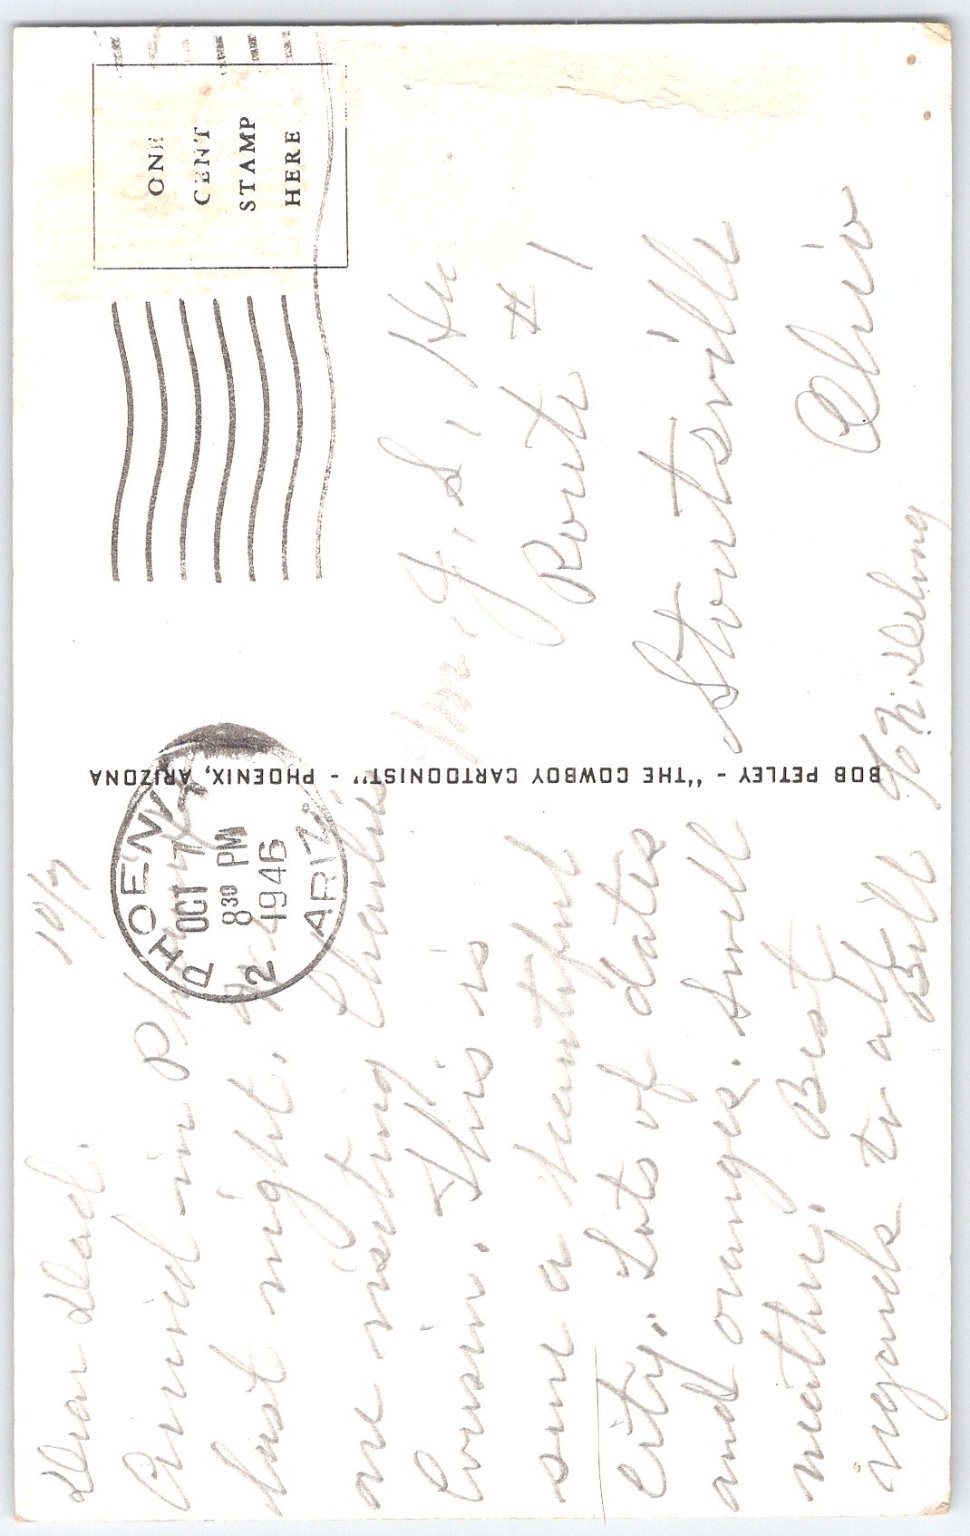 10/7
Dear Dad.
Arrived in Phoenix
last night. We
are visiting Charlie
Cousin. This is
sure a beautiful
City. Lots of dates
and oranges. Swell
weather. Best
regards to all
Bill
BOB PETLEY - "THE COWBOY CARTOONIST" - PHOENIX, ARIZONA
PHOENIX
OCT 7
8 30 PM
1946
2 ARIZ.
ONE
CENT
STAMP
HERE
Mr. J. S.
Route #1
Stoutsville
Ohio